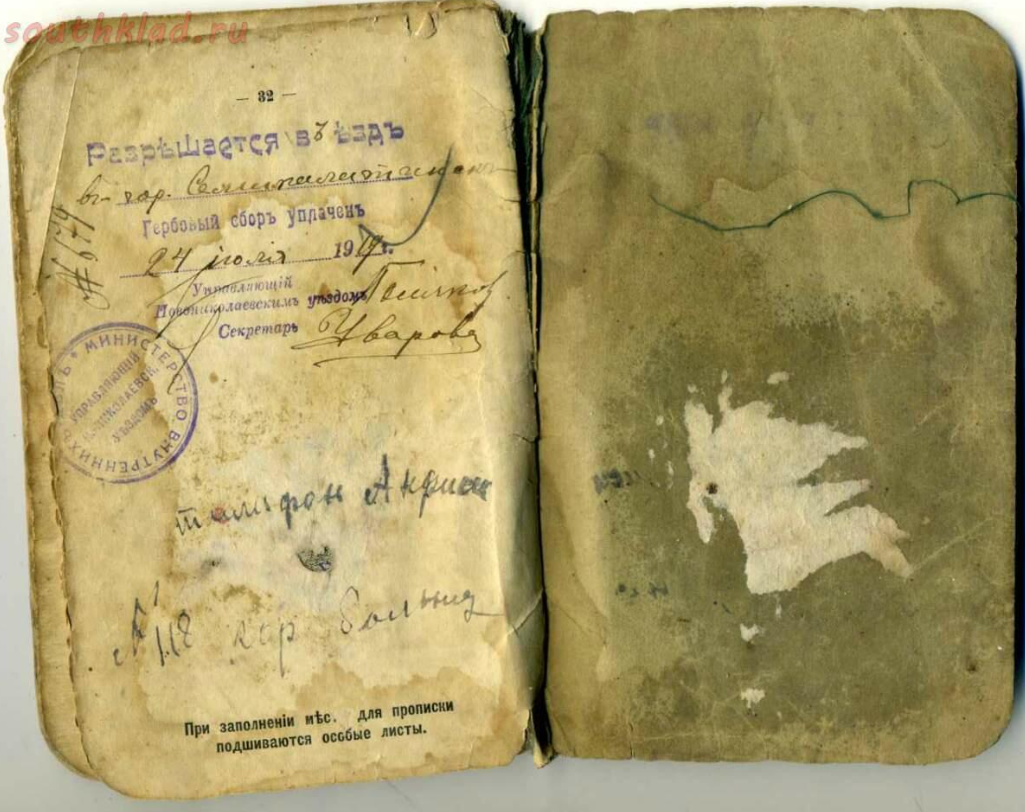 southklad.ru
— 32 —
Разрѣшается въѣздъ
въ гор. Семипалатинскъ
Гербовый сборъ уплаченъ
24 іюля 1919 г.
№ 6579
Управляющій
Новониколаевскимъ уѣздомъ
Секретарь Уварова
МИНИСТЕРСТВО ВНУТРЕННИХЪ
УПРАВЛЯЮЩІЙ
Н.-НИКОЛАЕВСК.
УѢЗДОМЪ
телефон
№ 118 гор больниц
При заполненіи мѣс. для прописки
подшиваются особые листы.